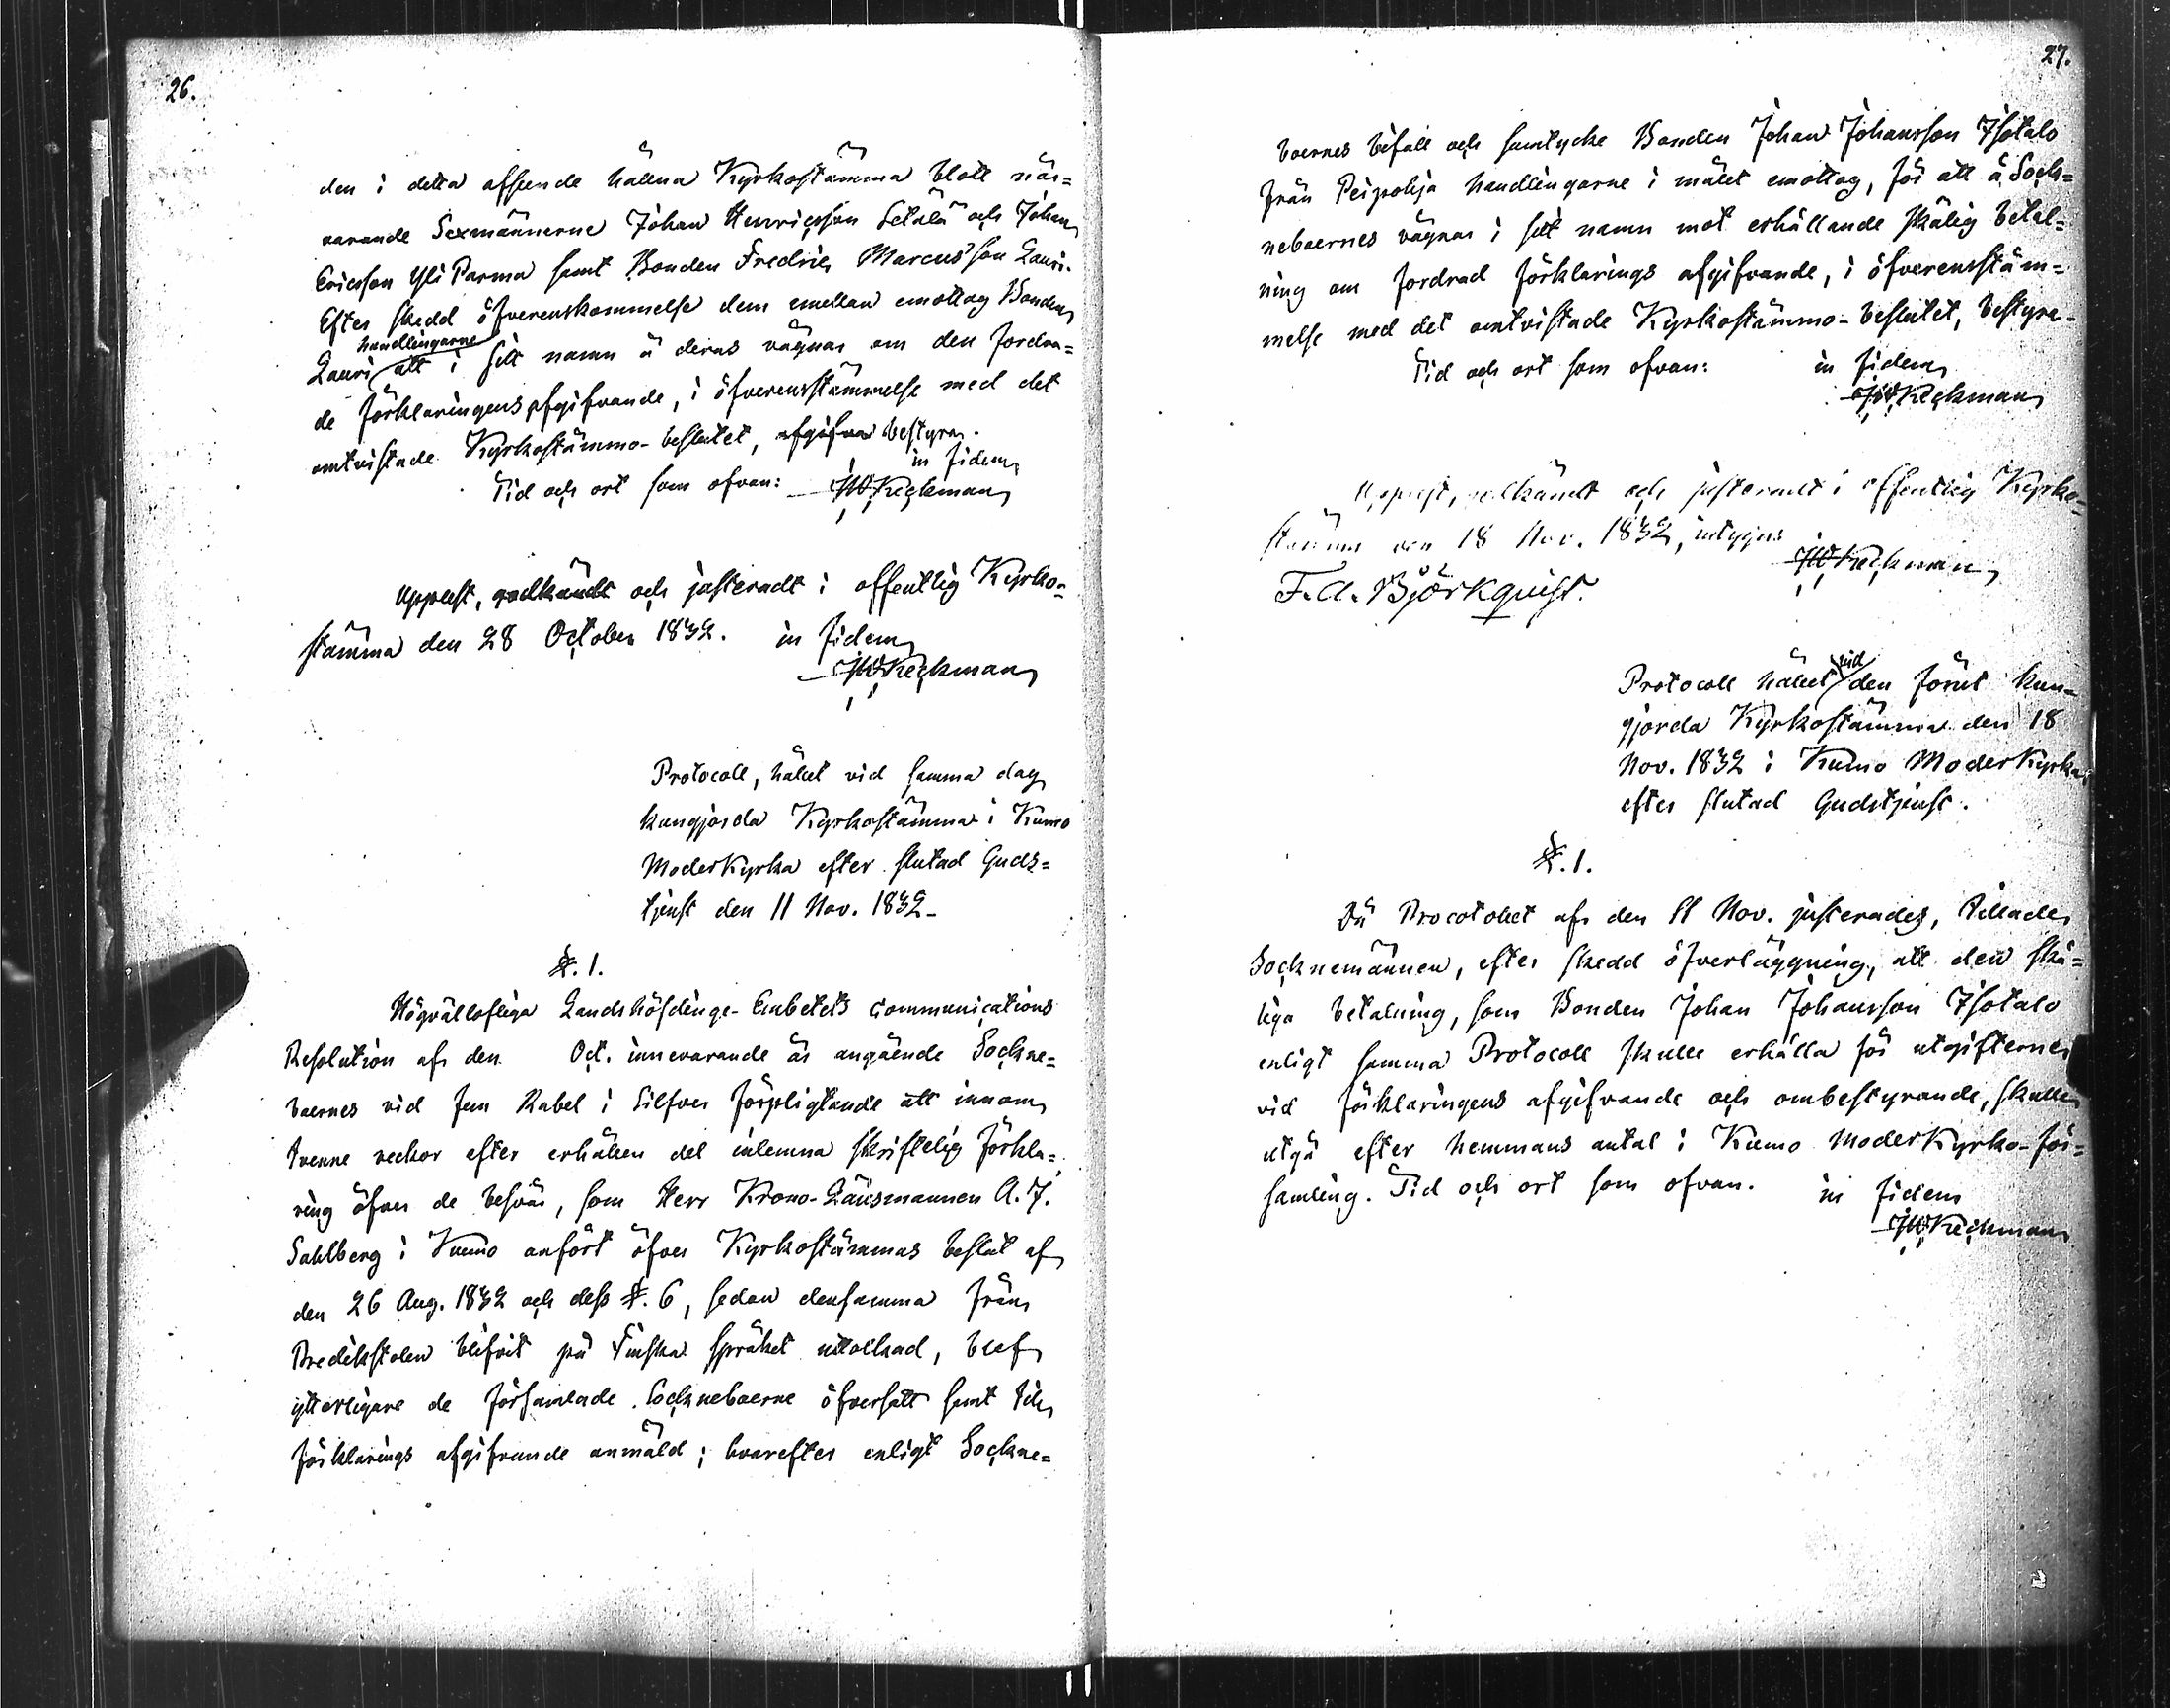 26.
den i detta afseende hållna Kyrkostämma blott när=
varande Sexmännerne Johan Henricsson Setälä och Johan
Ericsson Yli Parma samt Bonden Fredric Marcusson Lauri.
Efter skedd öfverenskommelse dem emellan emottog Bonden
handlingarne
Lauri att i sitt namn å deras vägnar om den fordra=
de förklaringens afgifvande, i öfverensstämmelse med det
omtvistade Kyrkostämmo-beslutet, afgifva bestyra.
in fidem
Tid och ort som ofvan: Keckman
Uppläst, godkändt och justeradt i offentlig Kyrko=
stämma den 28 October 1832. in fidem
Keckman
Protocoll, hållet vid samma dag
kungjorda Kyrkostämma i Kumo
Moderkyrka efter slutad Guds=
tjenst den 11 Nov. 1832.
§. 1.
Högvällofliga Landshöfdinge-Embetets Communications
Resolution af den Oct. innevarande år angående Sockne=
boernes vid fem Rubel i Silfver förpligtande att innom
tvenne veckor efter erhållen del inlemna skriftelig förkla=
ring öfver de besvär, som Herr Krono-Länsmannen A. J.
Sahlberg i Kumo anfört öfver Kyrkostämmas beslut af
den 26 Aug. 1832 och dess §. 6, sedan densamma från
Predikstolen blifvit på Finska språket uttolkad, blef
ytterligare de församlade Sockneboerne öfversatt samt till
förklarings afgifvande anmäld; hvarefter enligt Sockne=
27.
boernes bifall och samtycke Bonden Johan Johansson Isotalo
från Peipohja handlingarne i målet emottog, för att å Sock=
neboernes vägnar i sitt namn mot erhållande skälig betal=
ning om fordrad förklarings afgifvande, i öfverensstäm=
melse med det omtvistade Kyrkostämmo-beslutet, bestyra.
Tid och ort som ofvan: in fidem
Keckman
Uppläst, godkändt och justeradt i offentlig Kyrko=
stämma den 18 Nov. 1832, intygas
Keckman
F. A. Björkqvist.
vid
Protocoll hållet den förut kun=
gjorda Kyrkostämma den 18
Nov. 1832 i Kumo Moderkyrka
efter slutad Gudstjenst.
§. 1.
Då Procotollet af den 11 Nov. justerades, stillade
Socknemännen, efter skedd öfverläggning, att den skä=
liga betalning, som Bonden Johan Johansson Isotalo
enligt samma Protocoll skulle erhålla för utgifterne
vid förklaringens afgifvande och ombestyrande, skulle
utgå efter hemmans antal i Kumo Moderkyrko-för=
samling. Tid och ort som ofvan. in fidem
Keckman